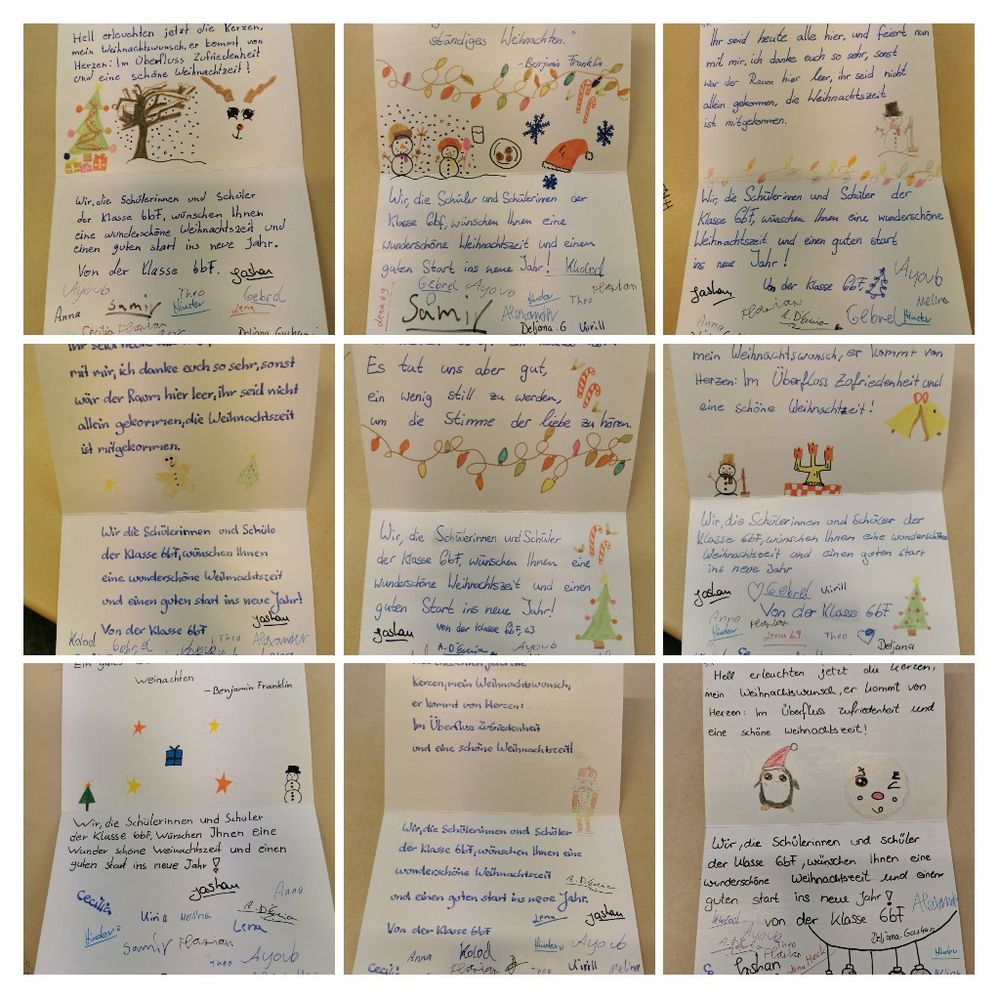 Hell erleuchten jetzt die Kerzen,
mein Weihnachtswunsch, er kommt von
Herzen: Im Überfluss Zufriedenheit
und eine schöne Weihnachtzeit!
Wir, die Schülerinnen und Schüler
der Klasse 6bF, wünschen Ihnen
eine wunderschöne Weihnachtszeit und
einen guten start ins neue Jahr.
Von der Klasse 6bF. Jashan
Ayoub Theo Gebrel
Anna Samir Hinder Lena
Cecilia Florian Deljana Gashani
ständiges Weihnachten."
- Benjamin Franklin
Wir, die Schüler und Schülerinnen der
Klasse 6bf, wünschen Ihnen eine
wunderschöne Weihnachtszeit und einen
guten Start ins neue Jahr! Kholod
Lena 69 Gebrel Ayoub Hinder Theo Florian
Samir Alexander
Deljana.G Uirill
Ihr seid heute alle hier, und feiert nun
mit mir, ich danke euch so sehr, sonst
wär der Raum hier leer, ihr seid nicht
allein gekommen, die Weihnachtszeit
ist mitgekommen.
Wir, die Schülerinnen und Schüler der
Klasse 6bF, wünschen Ihnen eine wunderschöne
Weihnachtszeit und einen guten start
ins neue Jahr!
Von der Klasse 6bF Ayoub
Jashan Florian Melina
Anna A. D'Emia Gebrel Hinder
mit mir, ich danke euch so sehr, sonst
wär der Raum hier leer, ihr seid nicht
allein gekommen, die Weihnachtszeit
ist mitgekommen.
Wir die Schülerinnen und Schüle
der Klasse 6bF, wünschen Ihnen
eine wunderschöne Weihnachtszeit
und einen guten start ins neue Jahr!
Jashan
Von der Klasse 6bF
Kolod Gebrel Ayoub Theo Alexander
Es tut uns aber gut,
ein wenig still zu werden,
um die Stimme der liebe zu hören.
Wir, die Schülerinnen und Schüler
der Klasse 6bF, wünschen Ihnen eine
wunderschöne Weihnachtszeit und einen
guten Start ins neue Jahr!
Jashan von der klasse 6bF, 63
A. D'Emia Ayoub
mein Weihnachtswunsch, er kommt von
Herzen: Im Überfluss Zofriedenheit und
eine schöne Weihnachtzeit!
Wir, die Schülerinnen und Schüler der
Klasse 6bF, wünschen Ihnen eine wunderschöne
Weihnachtszeit und einen guten start
ins neue Jahr
Jashan Gebrel Uirill
Von der Klasse 6bF
Anna Florian
Hinder Lena 69 Theo Deljana
Weinachten
- Benjamin Franklin
Wir, die Schülerinnen und Schüler
der Klasse 6bF, Wünschen Ihnen eine
Wunder schöne Weinachtszeit und einen
guten start ins neue Jahr!
Cecilia Jashan Anna
Uirill Melina A. D'Emia
Hinder Lena
Samir Florian Ayoub
Theo Alexander
Kerzen, mein Weihnachtswunsch,
er kommt von Herzen:
Im Überfluss Zufriedenheit
und eine schöne Weihnachtszeit!
Wir, die Schülerinnen und Schüler
der Klasse 6bF, wünschen Ihnen eine
wunderschöne Weihnachtszeit
A. D'Emia
und einen guten start ins neue Jahr.
Lena Jashan
Von der Klasse 6bF
Anna Kolod Hinder Ayoub
Cecil Florian Uirill Melina
Hell erleuchten jetzt die Kerzen,
mein Weihnachtswunsch, er kommt von
Herzen: Im Überfluss zufriedenheit und
eine schöne weihnachtszeit!
Wir, die Schülerinnen und schüler
der Klasse 6bF, wünschen Ihnen eine
wunderschöne Weihnachtszeit und einen
guten start ins neue Jahr! Alexander
Kholod von der Klasse 6bF
Ayoub Deljana-Gashan
Theo Florian Hinder
Jashan Lena Heck Melina